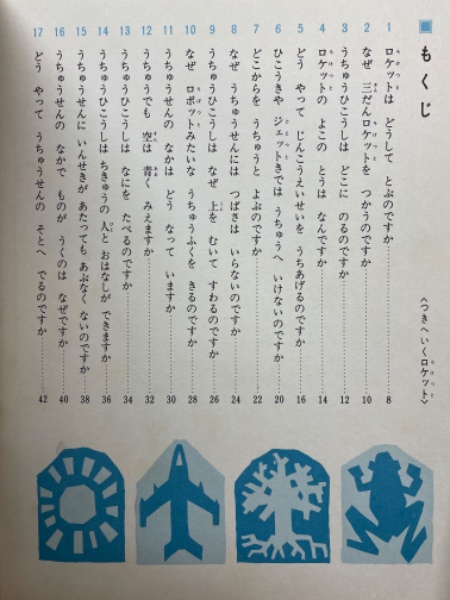 もくじ
〈つきへいくロケット〉
1 ロケットは どうして とぶのですか……8
2 なぜ 三だんロケットを つかうのですか……10
3 うちゅうひこうしは どこに のるのですか……12
4 ロケットの よこの とうは なんですか……14
5 どう やって じんこうえいせいを うちあげるのですか……16
6 ひこうきや ジェットきでは うちゅうへ いけないのですか……20
7 どこからを うちゅうと よぶのですか……22
8 なぜ うちゅうせんには つばさは いらないのですか……24
9 うちゅうひこうしは なぜ 上を むいて すわるのですか……26
10 なぜ ロボットみたいな うちゅうふくを きるのですか……28
11 うちゅうせんの なかは どう なって いますか……30
12 うちゅうでも 空は 青く みえますか……32
13 うちゅうひこうしは なにを たべるのですか……34
14 うちゅうひこうしは ちきゅうの 人と おはなしが できますか……36
15 うちゅうせんに いんせきが あたっても あぶなく ないのですか……38
16 うちゅうせんの なかで ものが うくのは なぜですか……40
17 どう やって うちゅうせんの そとへ でるのですか……42